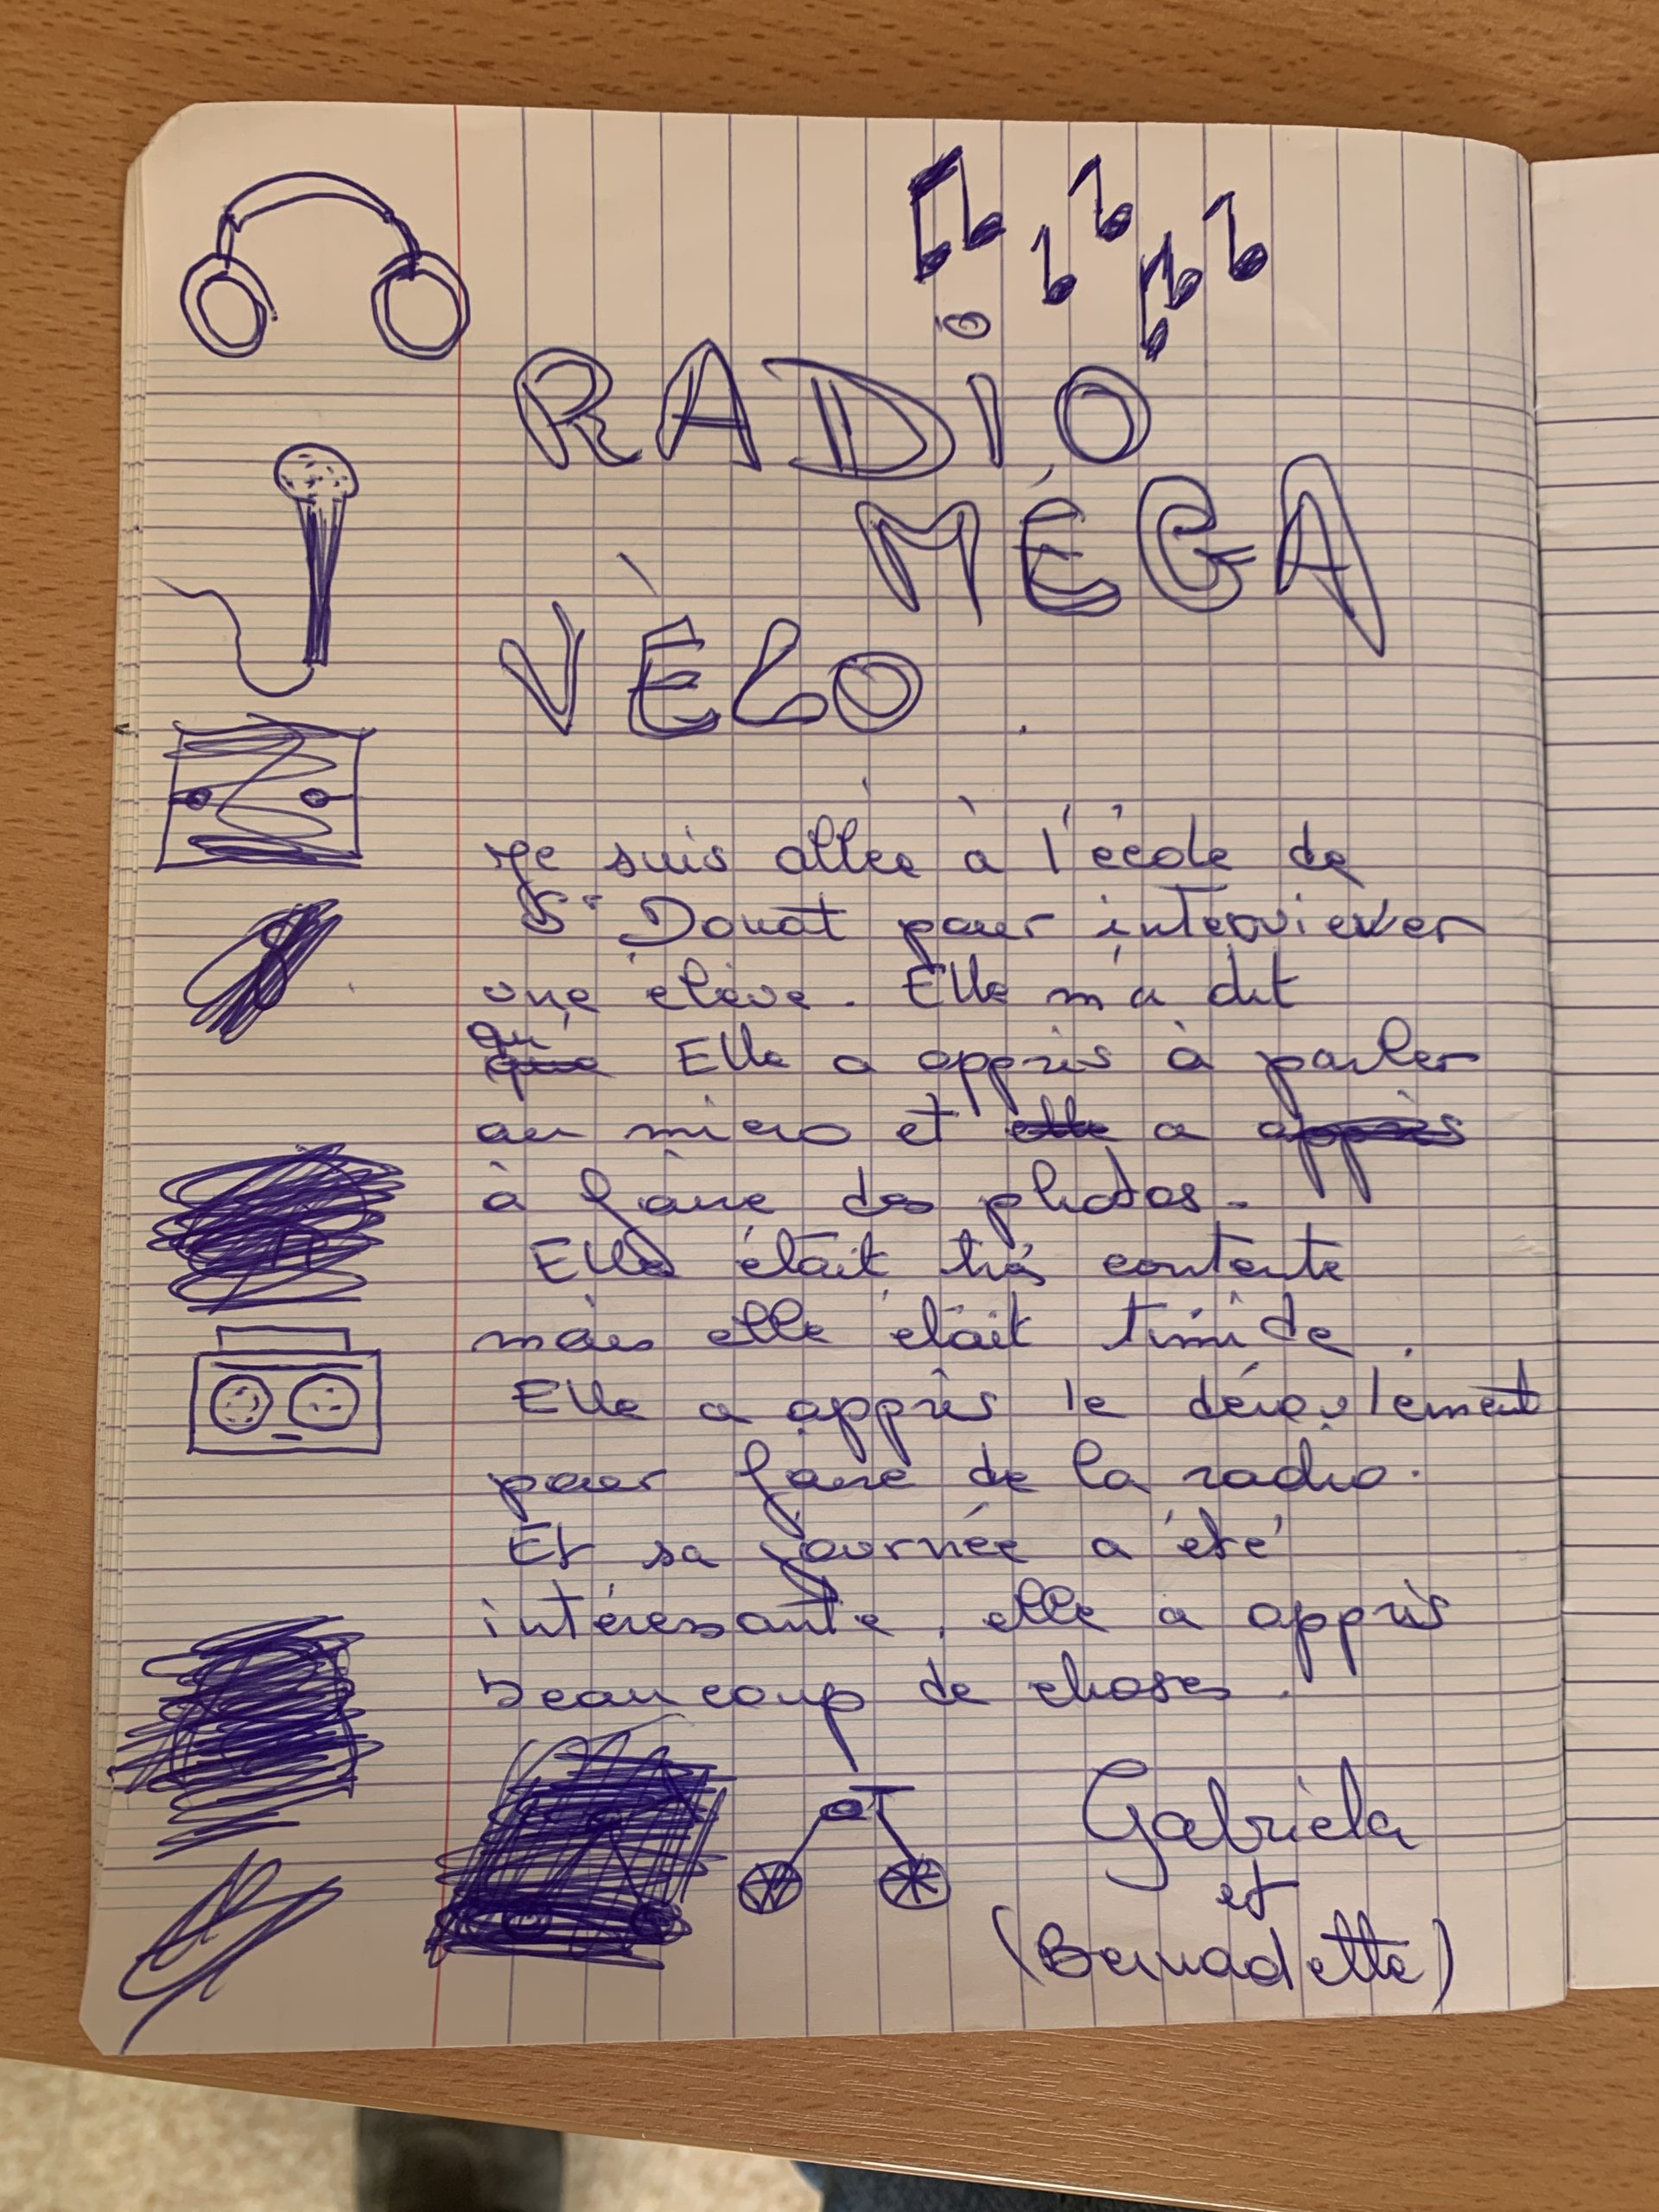 RADIO
MÉGA
VÈLO
Je suis allée à l'école de
St Donat pour interviewer
une élève. Elle m'a dit
qu'
que Elle a appris à parler
au micro et elle a appris
à faire des photos.
Elle était très contente
mais elle était timide.
Elle a appris le déroulement
pour faire de la radio.
Et sa journée a été
intéressante, elle a appris
beaucoup de choses.
Gabriela
et
(Bernadette)